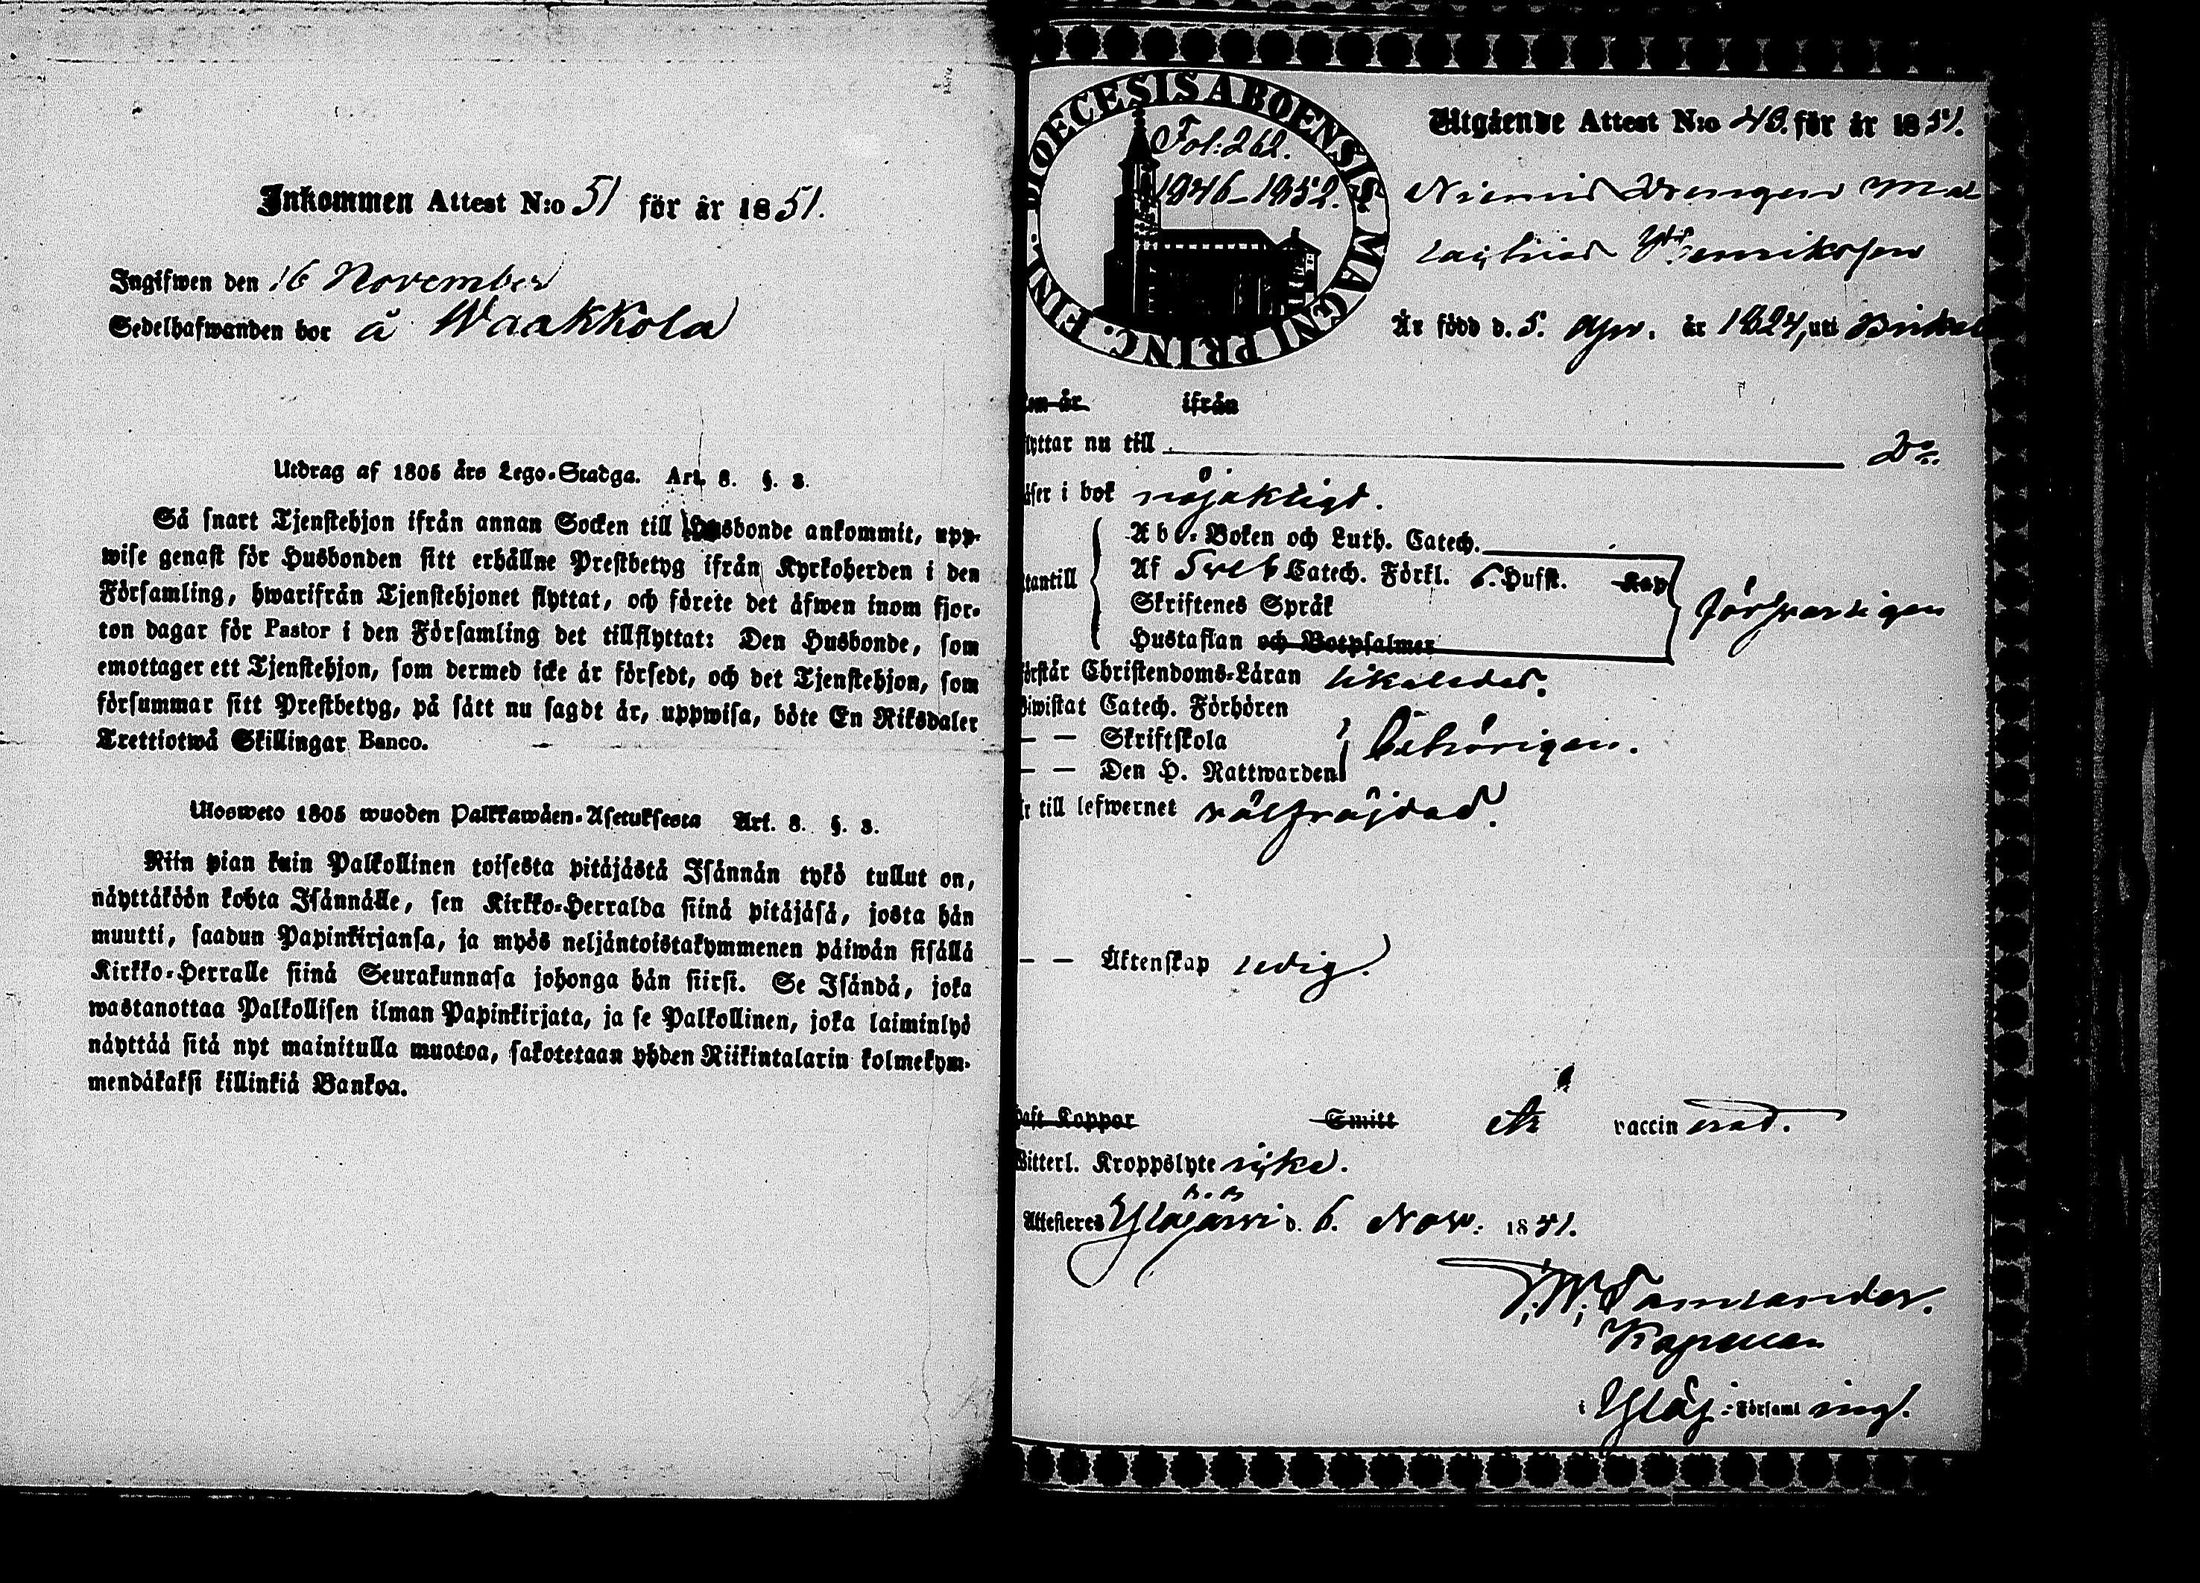 Inkommen Attest N:o 51 för år 1851.
Ingifwen den 16 November
Sedelhafwanden bor å Waakkola
Utdrag af 1805 års Lego-Stadga. Art. 8. §. 3.
Så snart Tjenstehjon ifrån annan Socken till Husbonde ankommit, upp-
wise genast för Husbonden sitt erhållne Prestbetyg ifrån Kyrkoherden i den
Församling, hwarifrån Tjenstehjonet flyttat, och förete det åfwen inom fjor-
ton dagar för Pastor i den Församling det tillflyttat: Den Husbonde, som
emottager ett Tjenstehjon, som dermed icke är försedt, och det Tjenstehjon, som
försummar sitt Prestbetyg, på sätt nu sagdt är, uppwisa, böte En Riksdaler
Trettiotwå Skillingar Banco.
Ulosweto 1805 wuoden Palkkawäen-Asetuksesta Art. 8. §. 3.
Niin pian kuin Palkollinen toisesta pitäjästä Isännän tykö tullut on,
näyttäköön kohta Isännälle, sen Kirkko-Herralda siinä pitäjäsä, josta hän
muutti, saadun Papinkirjansa, ja myös neljäntoistakymmenen päiwän sisällä
Kirkko-Herralle siinä Seurakunnasa johonga hän siirsi. Se Isändä, joka
wastanottaa Palkollisen ilman Papinkirjata, ja se Palkollinen, joka laiminlyö
näyttää sitä nyt mainitulla muotoa, sakotetaan yhden Riikintalarin kolmekym-
mendäkaksi killinkiä Bankoa.
DIOECESIS ABOENSIS MAGNI PRINC. FINL.
Fol: 262.
1846-1852.
Utgående Attest N:o 48. för år 1851.
Drengen
Henriksson
Är född d. 5. Apr. år 1824, uti
år ifrån
flyttar nu till
Läser i bok nöjaktigt.
Abc-Boken och Luth. Catech.
Af Sveb Catech. Förkl. 6. Hufst. Kap
utantill
Skriftenes Språk
försvarligen
Hustaflan och Botpsalmer
Förstår Christendoms-Läran likaledes.
Biwistat Catech. Förhören
— — Skriftskola
behörigen.
— — Den H. Nattwarden
Är till lefwernet välfräjdad.
— — Äktenskap ledig.
Haft Koppor Smitt Är vaccinerad.
Witterl. Kroppslyte icke.
Attesteres Ylöjärwi d. 6. Nov. 1851.
Kapellan
i Ylöj: Församling.